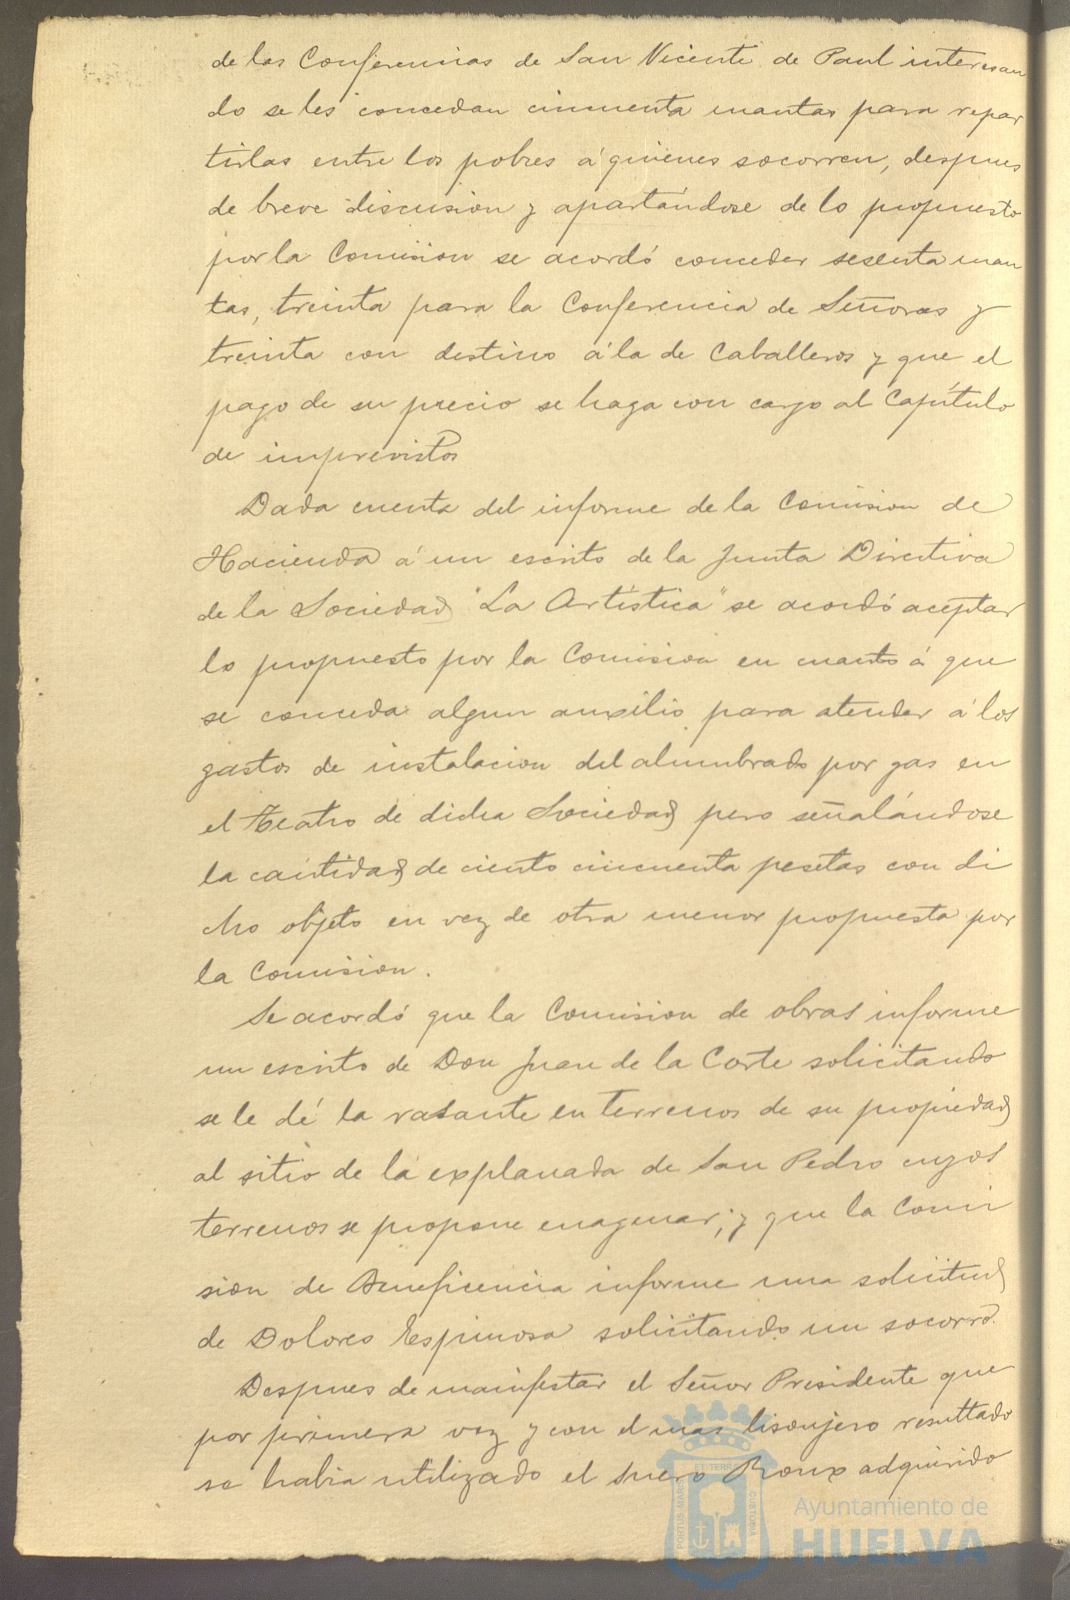 de las Conferencias de San Vicente de Paul interesan
do se les concedan cincuenta mantas para repar
tirlas entre los pobres á quienes socorren, despues
de breve discusion y apartándose de lo propuesto
por la Comision se acordó conceder sesenta man
tas, treinta para la Conferencia de Señoras y
treinta con destino á la de Caballeros y que el
pago de su precio se haga con cargo al Capítulo
de imprevistos
Dada cuenta del informe de la Comision de
Hacienda á un escrito de la Junta Directiva
de la Sociedad "La Artística" se acordó aceptar
lo propuesto por la Comision en cuanto á que
se conceda algun auxilio para atender á los
gastos de instalacion del alumbrado por gas en
el Teatro de dicha Sociedad pero señalándose
la cantidad de ciento cincuenta pesetas con di
cho objeto en vez de otra menor propuesta por
la Comision.
Se acordó que la Comision de obras informe
un escrito de Don Juan de la Corte solicitando
se le dé la rasante en terrenos de su propiedad
al sitio de la explanada de San Pedro cuyos
terrenos se propone enagenar; y que la Comi
sion de Beneficencia informe una solicitud
de Dolores Espinosa solicitando un socorro.
Despues de manifestar el Señor Presidente que
por primera vez y con el mas lisonjero resultado
se habia utilizado el suero Roux adquirido
PORTUS MARIS ET TERRE CUSTODIA
Ayuntamiento de
HUELVA